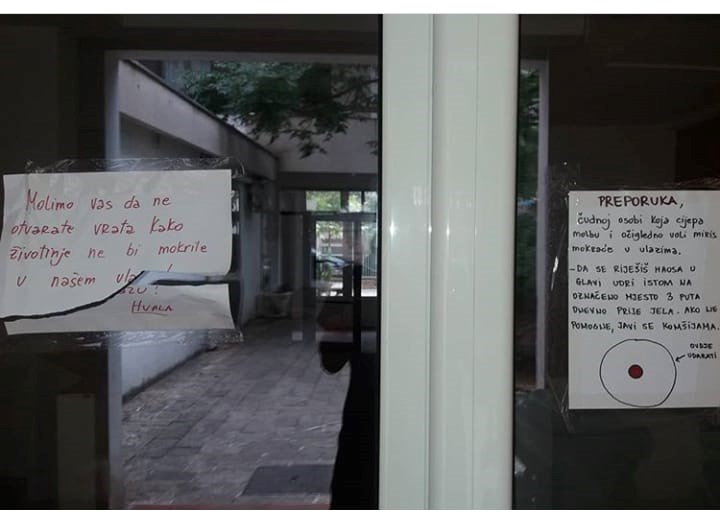 Molimo vas da ne
otvarate vrata kako
životinje ne bi mokrile
u našem ulazu!
HVALA
PREPORUKA,
čudnoj osobi koja cijepa
molbu i očigledno voli miris
mokraće u ulazima.
- DA SE RIJEŠIŠ HAOSA U
GLAVI UDRI ISTOM NA
OZNAČENO MJESTO 3 PUTA
DNEVNO PRIJE JELA. AKO NE
POMOGNE, JAVI SE KOMŠIJAMA.
OVDJE
UDARATI